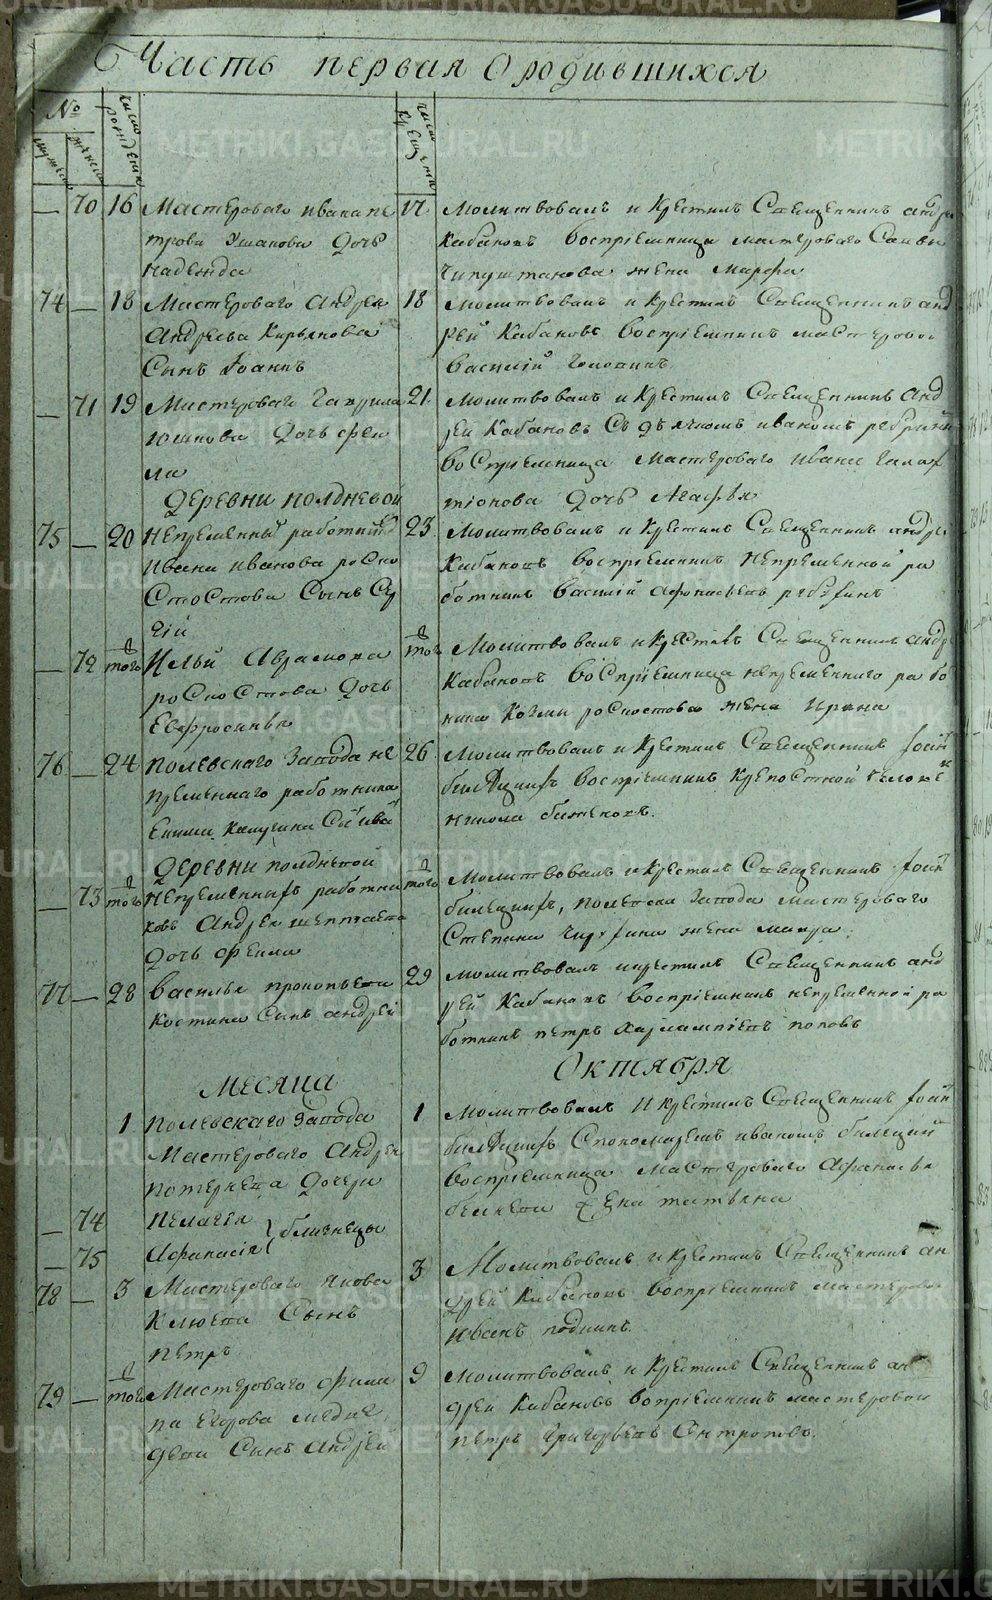 Часть первая О родившихся
№
мужеска
женска
число рождения
число крещения
— 70 16 Мастероваго ивана пе
трова Ушакова Дочь
надежда
17 Молитвовалъ и Крестилъ Священникъ андре
Кабановъ Воспріемница мастероваго Саввы
жена Марфа
74 — 18 Мастероваго Андрея
Андреева Кирьянова
Сынъ Іоаннъ
18 Молитвовалъ и Крестилъ Священникъ анд
рей Кабановъ Воспріемникъ мастеровой
Василій Головинъ
— 71 19 Мастероваго Гаврила
юшкова Дочь феки
ла
21 Молитвовалъ и Крестилъ Священникъ Анд
рей Кабановъ Съ дьячкомъ иваномъ
воспріемница Мастероваго ивана Галах
тіонова Дочь Агафья
Деревни полдневой
75 — 20 непременный работникъ
ивана иванова роспо
Стостова Сынъ Сер
гій
23 Молитвовалъ и Крестилъ Священникъ андре
Кабановъ воспріемникъ Непременной ра
ботникъ Василій Афонасьевъ
— 72 того Ильи Аврамова
Дочь
Евфросинья
того Молитвовалъ и Крестилъ Священникъ андре
Кабановъ воспріемница непременнаго рабо
ника Козмы жена Ирина
76 — 24 полевскаго Завода не
пременнаго работника
Екима Калугина
26 Молитвовалъ и Крестилъ Священникъ Іоан
воспріемникъ крепостной челове
никола
Деревни полдневой
— 73 того непременныхъ работни
ковъ Андрея
Дочь Фекла
того Молитвовалъ и Крестилъ Священникъ Іоан
полевска Завода мастероваго
Степана жена мавра
77 — 28 василья прокопьева
Костина Сынъ андрей
29 молитвовалъ и крестилъ Священникъ анд
рей Кабановъ воспріемникъ непременной ра
ботникъ петръ харлампіевъ поповъ
Месяца Октября
1 полевскаго Завода
Мастероваго Андрея
потеряева Дочери
— 74 пелагія
— 75 Афанасія } близнецы
1 Молитвовалъ и крестилъ Священникъ Іоан
Спономаремъ иваномъ
воспріемница Мастероваго Афанасья
татьяна
78 — 3 Мастероваго якова
Клюева Сынъ
петръ
3 Молитвовалъ и крестилъ Священникъ ан
дрей Кабановъ воспріемникъ мастеровой
иванъ
79 — того Мастероваго фили
па Егорова медве
дева Сынъ Андрей
9 Молитвовалъ и Крестилъ Священникъ ан
дрей Кабановъ вопріемникъ мастеровой
петръ Григорьевъ Онтроповъ.
METRIKI.GASO-URAL.RU